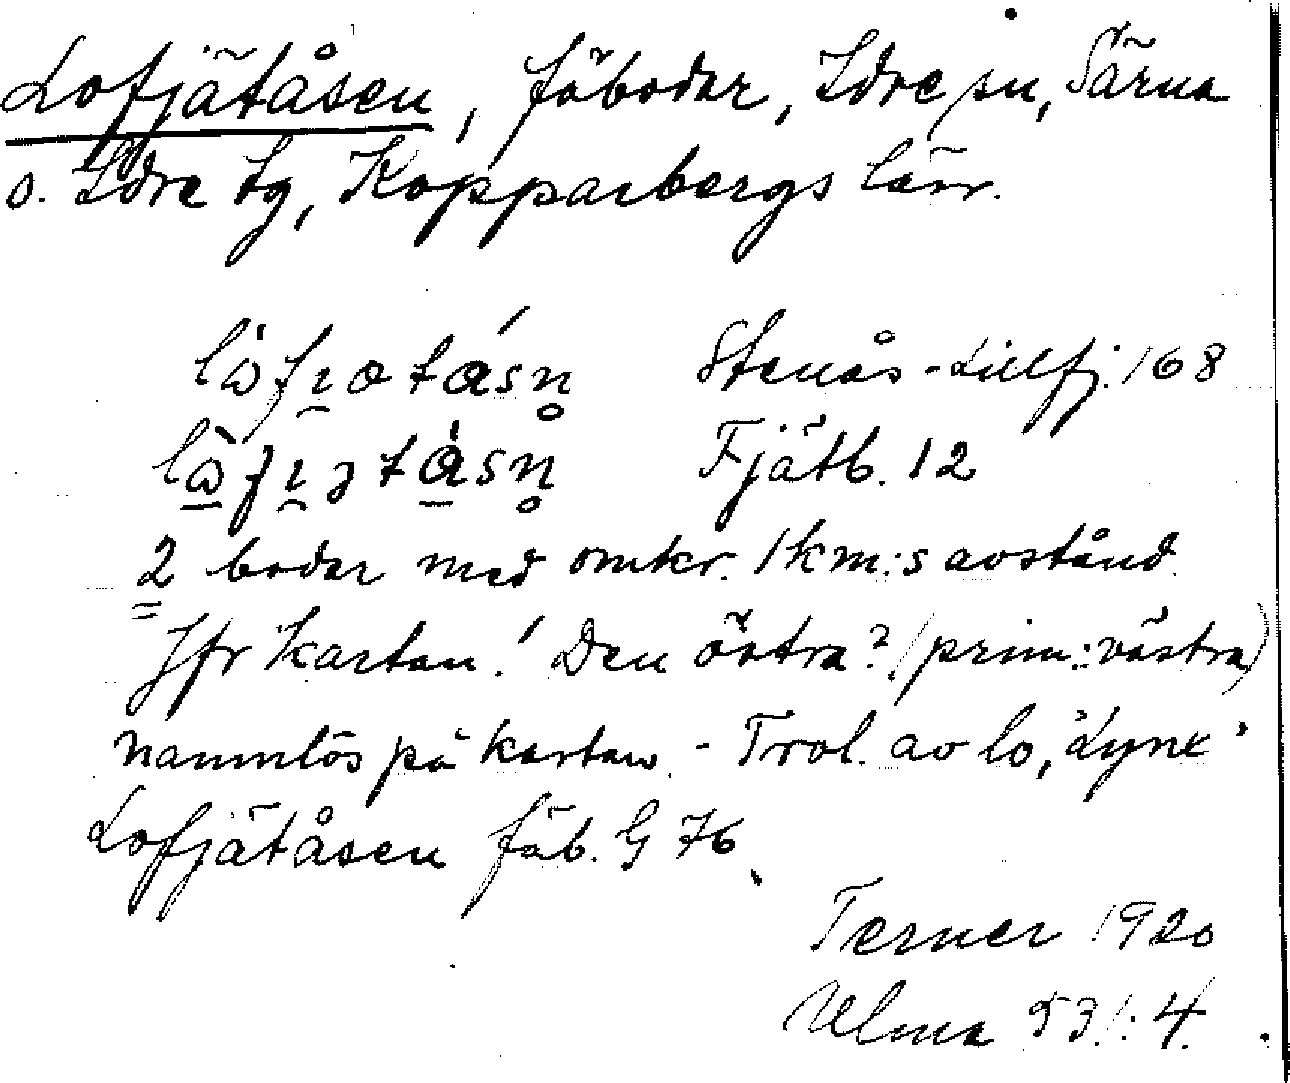 Lofjätåsen, fäbodar, Idre sn, Särna
o. Idre tg, Kopparbergs län.
Stenås-Lillfj. 168
Fjätb. 12
2 bodar med omkr. 1 km:s avstånd.
Jfr kartan! Den östra? (prim: västra)
namnlös på kartan. - Trol. av lo, "Lynx"
Lofjätåsen fäb. G 76
Terner 1920
Ulma 531:4.